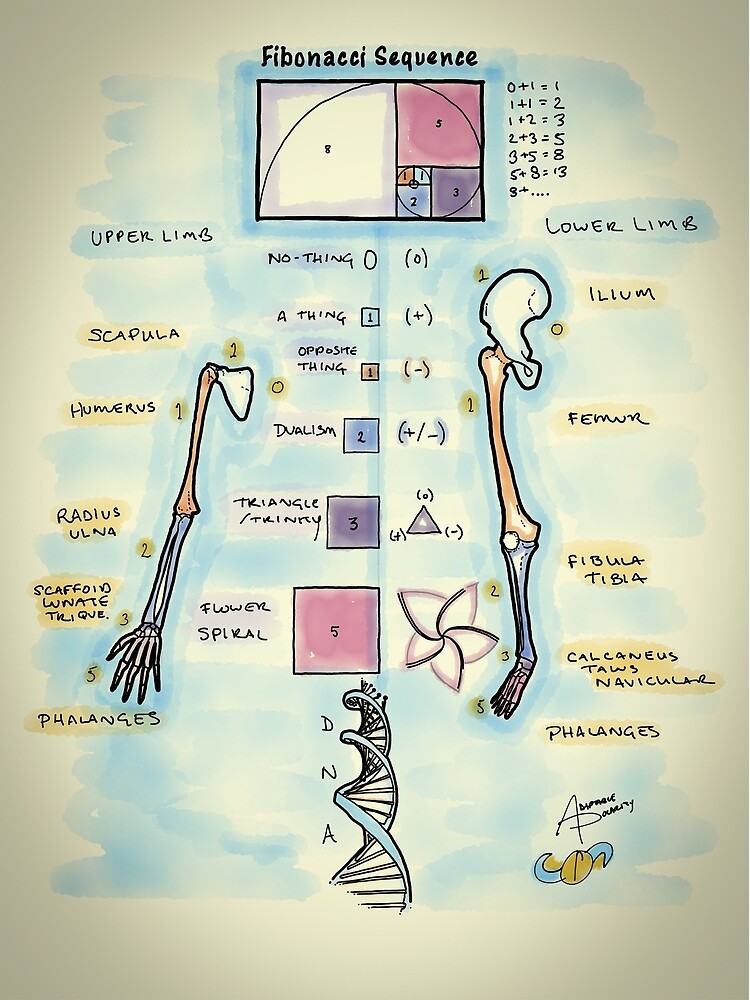 Fibonacci Sequence
8
5
1
1
2
3
0+1=1
1+1=2
1+2=3
2+3=5
3+5=8
5+8=13
8+....
UPPER LIMB
LOWER LIMB
NO-THING 0 (0)
A THING 1 (+)
OPPOSITE
THING 1 (-)
DUALISM 2 (+/-)
TRIANGLE
/TRINITY 3
(0)
(+) (-)
FLOWER
SPIRAL
5
D
N
A
SCAPULA
1
0
HUMERUS
1
RADIUS
ULNA
2
SCAFFOID
LUNATE
TRIQUE.
3
5
PHALANGES
1
ILIUM
0
1
FEMUR
FIBULA
TIBIA
2
CALCANEUS
TALUS
NAVICULAR
3
5
PHALANGES
ADAPTABLE
POLARITY